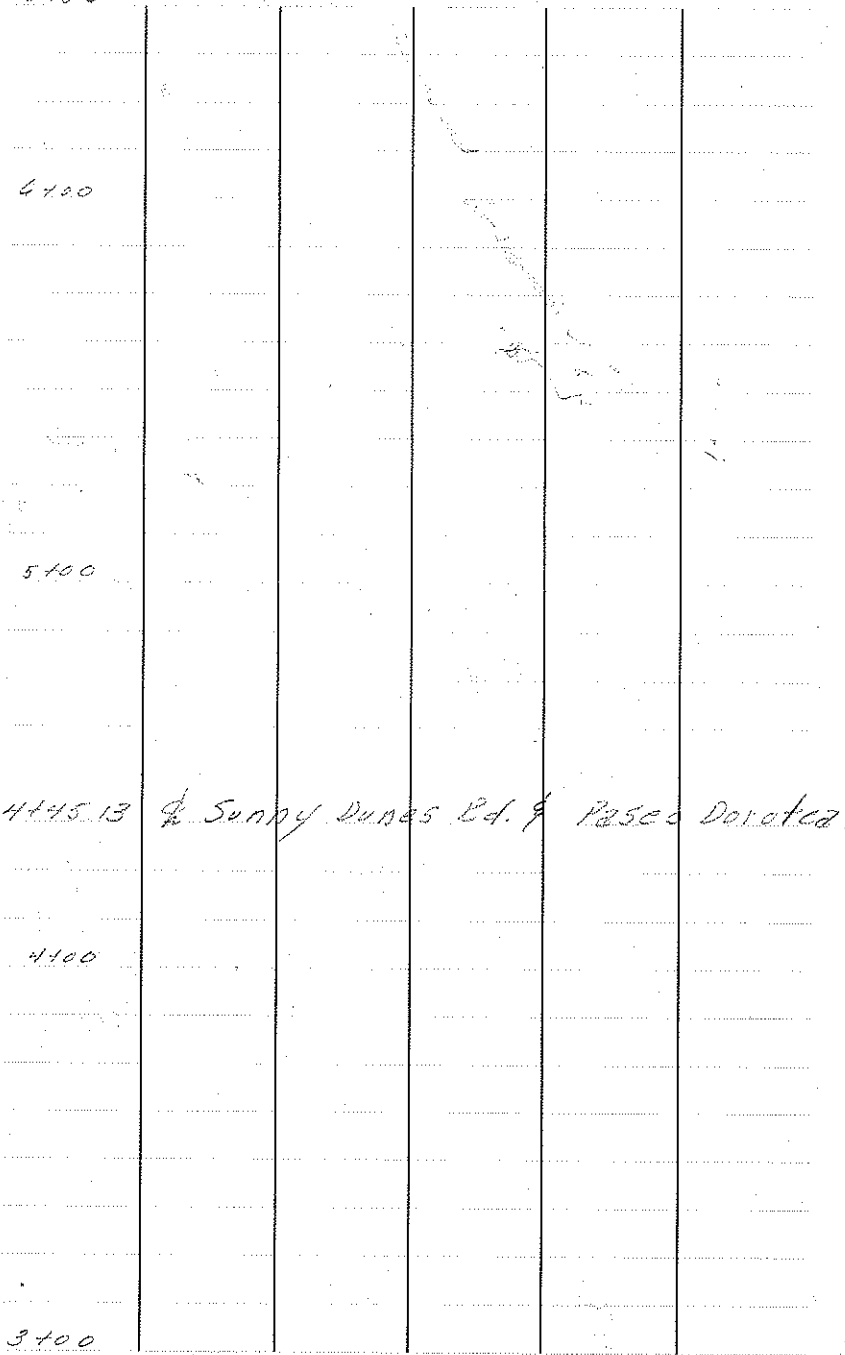 6+00
5+00
4+45.13 ℄ Sunny Dunes Rd. & Paseo Dorotea
4+00
3+00